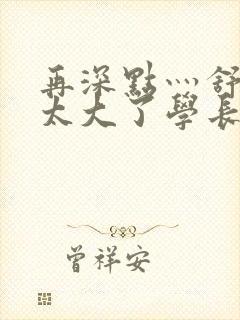 再深點灬舒
太大了學長
曾祥安